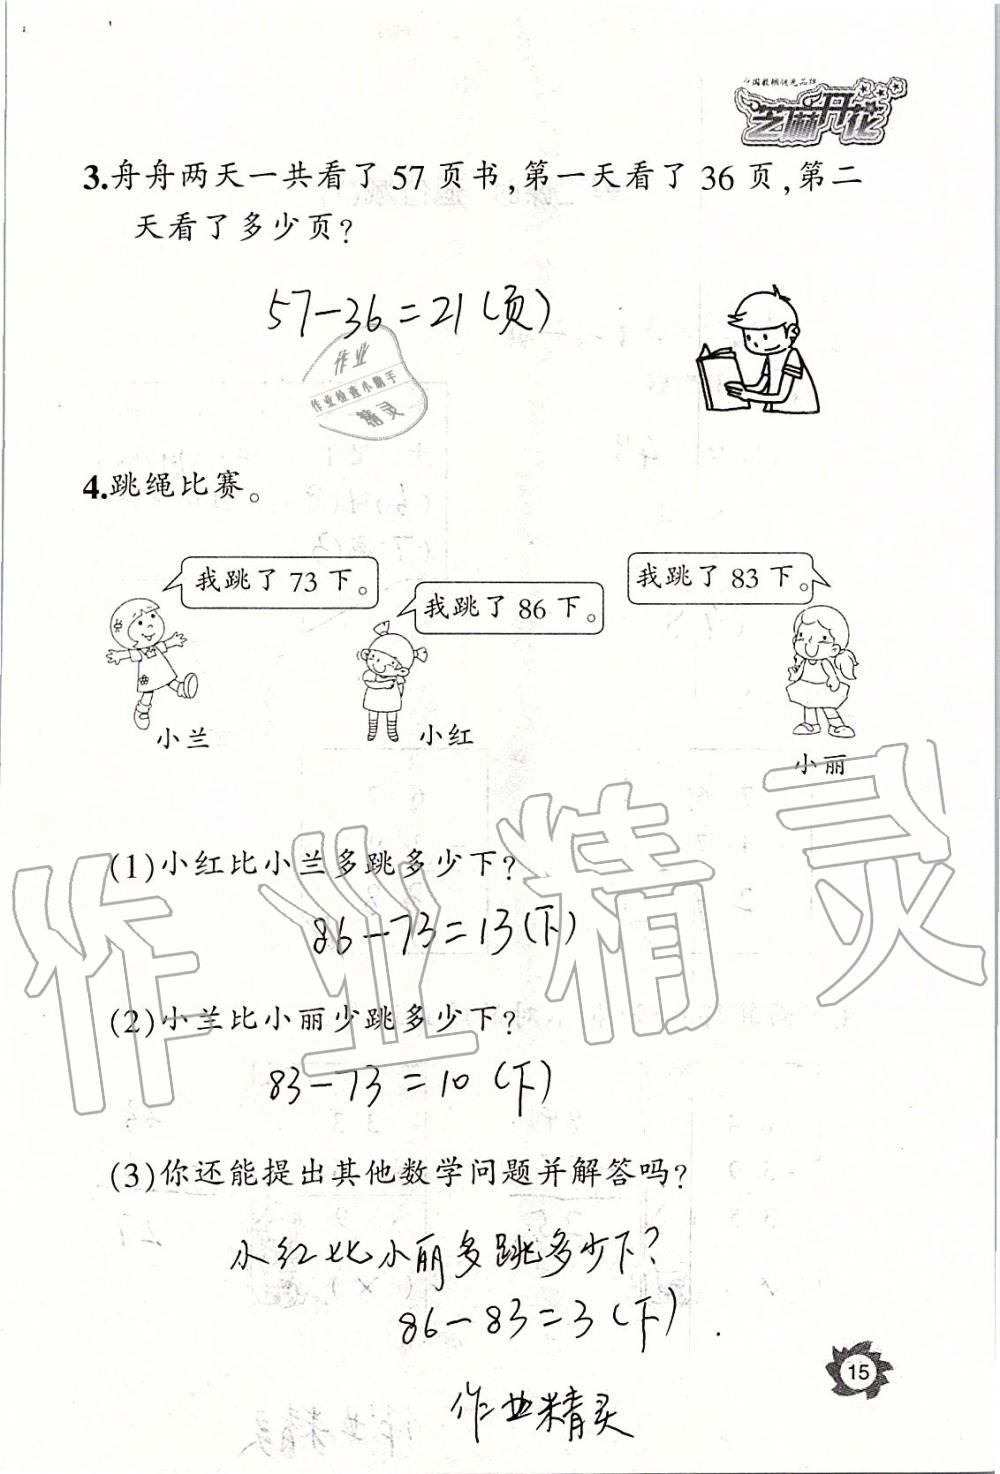 中国教辅领先品牌
芝麻开花
3.舟舟两天一共看了57页书,第一天看了36页,第二
天看了多少页?
57-36=21(页)
作业
作业检查小助手
精灵
4.跳绳比赛。
我跳了73下。
我跳了86下。
我跳了83下。
小兰
小红
小丽
作业精灵
(1)小红比小兰多跳多少下?
86-73=13(下)
(2)小兰比小丽少跳多少下?
83-73=10(下)
(3)你还能提出其他数学问题并解答吗?
小红比小丽多跳多少下?
86-83=3(下)
15
作业精灵